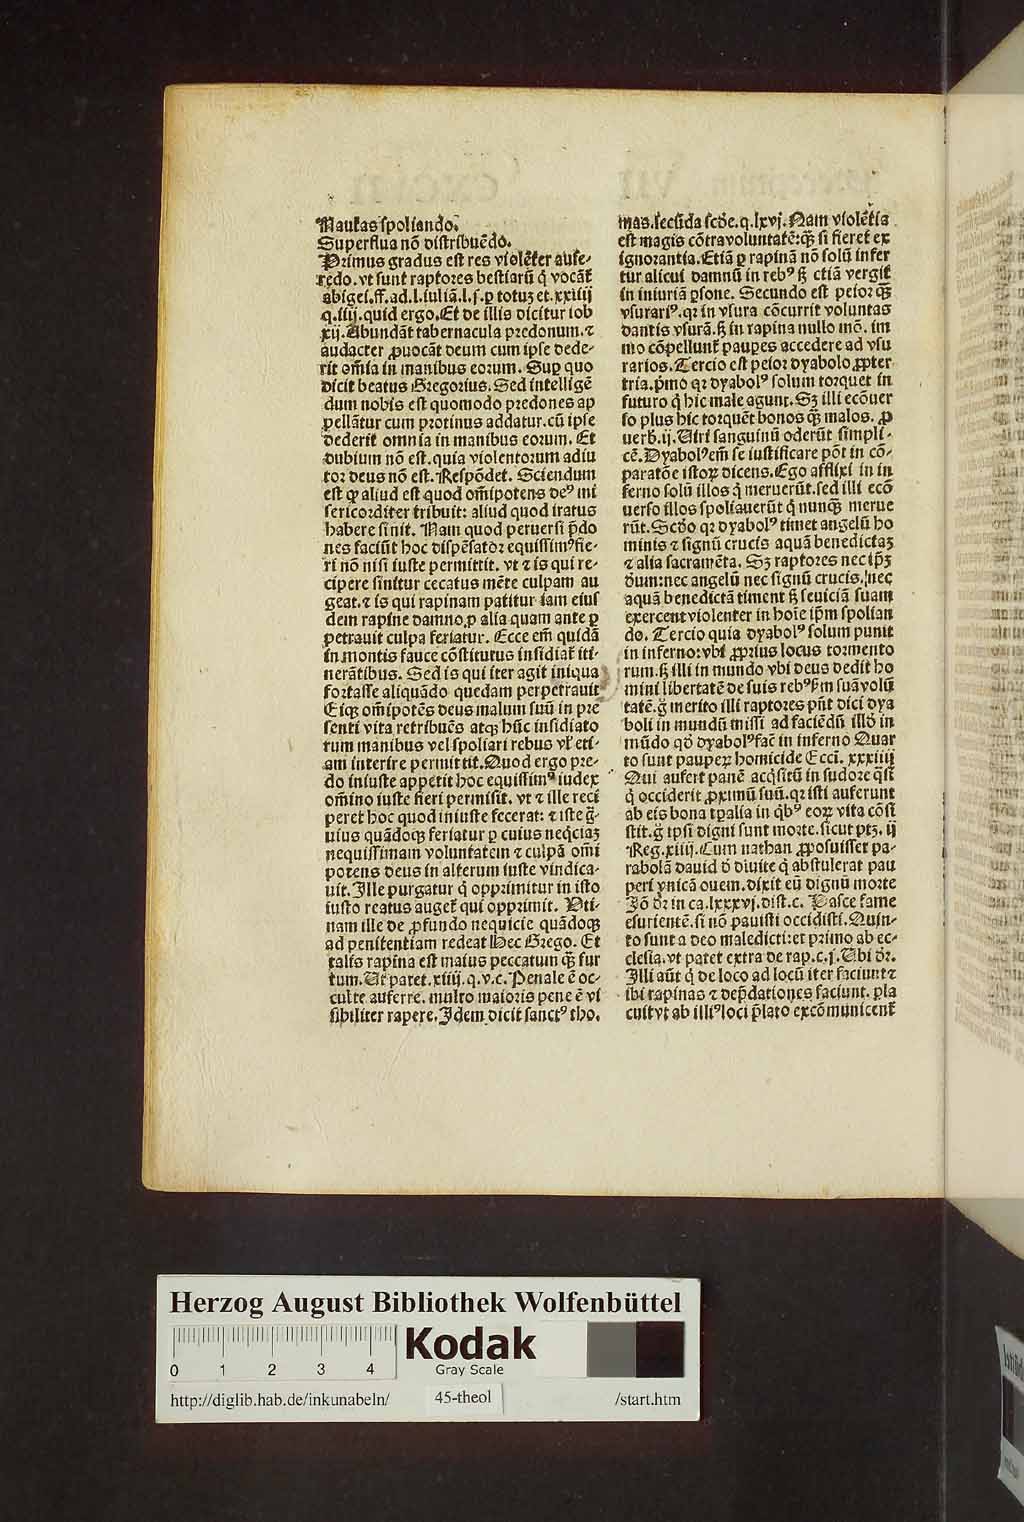 Nautas spoliando.
Superflua nõ distribuẽdo.
Primus gradus est res violẽter aufe-
rẽdo. vt sunt raptores bestiarũ q̇ vocãt᷑
abigei. ff. ad. l. iuliã. l. j. ꝑ totuʒ et. xxiiij
q. iiij. quid ergo. Et de illis dicitur iob
xij. Abundãt tabernacula predonum. ⁊
audacter ꝓuocãt deum cum ipse dede-
rit om̃ia in manibus eorum. Suꝑ quo
dicit beatus Gregorius. Sed intelligẽ
dum nobis est quomodo predones ap
pellãtur cum protinus addatur. cũ ipse
dederit omnia in manibus eorum. Et
dubium nõ est. quia violentorum adiu
tor deus nõ est. Respõdet. Sciendum
est ꝙ aliud est quod om̃ipotens deꝰ mi
sericorditer tribuit: aliud quod iratus
habere sinit. Nam quod peruersi p̃do
nes faciũt hoc dispẽsator equissimꝰ fie-
ri nõ nisi iuste permittit. vt ⁊ is qui re-
cipere sinitur cecatus mẽte culpam au
geat. ⁊ is qui rapinam patitur iam eius
dem rapine damno. ꝓ alia quam ante ꝑ
petrauit culpa feriatur. Ecce em̃ quidã
in montis fauce cõstitutus insidiat᷑ iti-
nerãtibus. Sed is qui iter agit iniqua
fortasse aliquãdo quedam perpetrauit
Eiqʒ om̃ipotẽs deus malum suũ in pre
senti vita retribuẽs atqʒ hũc insidiato
rum manibus vel spoliari rebus vl̕ eti-
am interire permittit. Quod ergo pre-
do iniuste appetit hoc equissimꝰ iudex
om̃ino iuste fieri permisit. vt ⁊ ille reci
peret hoc quod iniuste fecerat: ⁊ iste g̃-
uius quãdoqʒ feriatur ꝑ cuius neq̇ciaʒ
nequissimam voluntatem ⁊ culpã om̃i
potens deus in alterum iuste vindica-
uit. Ille purgatur q̇ opprimitur in isto
iusto reatus auget᷑ qui opprimit. Vti-
nam ille de ꝓfundo nequicie quãdoqʒ
ad penitentiam redeat Hec Grego. Et
talis rapina est maius peccatum qʒ̃ fur
tum. Ut patet. xiiij. q. v. c. Penale ẽ oc-
culte auferre. multo maioris pene ẽ vi
sibiliter rapere. Idem dicit sanctꝰ tho.
mas. secũda scd̕e. q. lxvj. Nam violẽtia
est magis cõtra voluntatẽ: qʒ̃ si fieret ex
ignorantia. Etiã ꝑ rapinã nõ solũ infer
tur alicui damnũ in rebꝰ sʒ etiã vergit᷑
in iniuriã ꝑsone. Secundo est peior qʒ̃
vsurariꝰ. qr in vsura cõcurrit voluntas
dantis vsurã. sʒ in rapina nullo mõ. im
mo cõpellunt᷑ pauꝑes accedere ad vsu
rarios. Tercio est peior dyabolo ꝓpter
tria. p̃mo qr dyabolꝰ solum torquet in
futuro q̇ hic male agunt. Sʒ illi ecõuer
so plus hic torquẽt bonos qʒ̃ malos. ꝓ
uerb. ij. Uiri sanguinũ oderũt simpli-
cẽ. Dyabolꝰ em̃ se iustificare põt in cõ-
paratõe istoꝝ dicens. Ego afflixi in in
ferno solũ illos q̇ meruerũt. sed illi ecõ
uerso illos spoliauerũt q̇ nunqʒ̃ merue
rũt. Scd̕o qr dyabolꝰ timet angelũ ho
minis ⁊ signũ crucis aquã benedictaʒ
⁊ alia sacramẽta. Sʒ raptores nec ip̃ʒ
d̕um: nec angelũ nec signũ crucis, nec
aquã benedictã timent sʒ seuiciã suam
exercent violenter in hoĩe ip̃m spolian
do. Tercio quia dyabolꝰ solum punit
in inferno: vbi ꝓprius locus tormento
rum. sʒ illi in mundo vbi deus dedit ho
mini libertatẽ de suis rebꝰ ẜm suã volũ
tatẽ. g̃ merito illi raptores pñt dici dya
boli in mundũ missi ad faciẽdũ illd̕ in
mũdo qd̕ dyabolꝰ fac̃ in inferno Quar
to sunt pauꝑeꝝ homicide Ecci. xxxiiij
Qui aufert panẽ acq̇sitũ in sudore q̃si
q̇ occiderit ꝓximũ suũ. qr isti auferunt
ab eis bona tꝑalia in q̇bꝰ eoꝝ vita cõsi
stit. g̃ ip̃si digni sunt morte. sicut ptʒ. ij
Reg. xiiij. Cum nathan ꝓposuisset pa-
rabolã dauid d̕ diuite q̇ abstulerat pau
peri vnicã ouem. dixit eũ dignũ morte
Iõ d̕r in ca. lxxxvj. dist. c. Pasce fame
esurientẽ. si nõ pauisti occidisti. Quin-
to sunt a deo maledicti: et primo ab ec-
clesia. vt patet extra de rap. c. j. Ubi d̕r.
Illi aũt q̇ de loco ad locũ iter faciunt ⁊
ibi rapinas ⁊ dep̃dationes faciunt. pla
cuit vt ab illiꝰ loci p̃lato excõmunicent᷑
Herzog August Bibliothek Wolfenbüttel
Kodak
Gray Scale
0 1 2 3 4
http://diglib.hab.de/inkunabeln/ 45-theol /start.htm